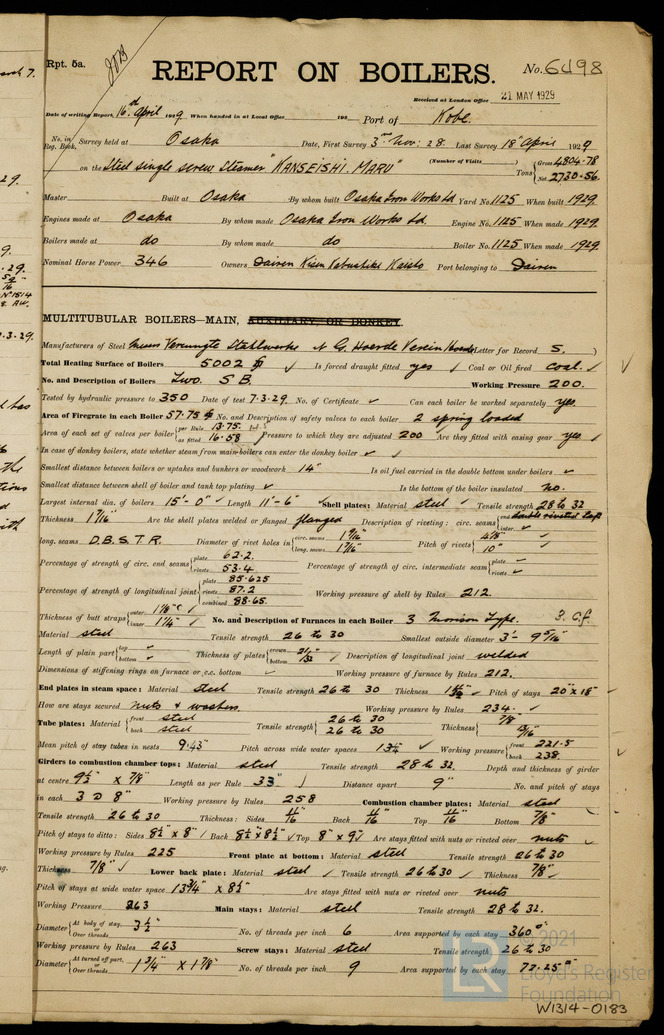 Rpt. 5a.
REPORT ON BOILERS.
No. 6498
Received at London Office 21 MAY 1929
Date of writing Report 16th April 1929 When handed in at Local Office 192 Port of Kobe.
No. in Reg. Book. Survey held at Osaka Date, First Survey 3rd Nov: 28. Last Survey 18th April 1929
on the Steel single screw Steamer "KANSEISHI MARU" (Number of Visits ) Tons { Gross 4804.78 Net 2730.56.
Master Built at Osaka By whom built Osaka Iron Works Ld Yard No. 1125 When built 1929.
Engines made at Osaka By whom made Osaka Iron Works Ld. Engine No. 1125 When made 1929.
Boilers made at do By whom made do Boiler No. 1125 When made 1929
Nominal Horse Power 346 Owners Dairen Kisen Kabushiki Kaisha Port belonging to Dairen
MULTITUBULAR BOILERS—MAIN, AUXILIARY, OR DONKEY.
Manufacturers of Steel Messrs Vereinigte Stahlwerke A G. Hoerde Verein Hoerde Letter for Record S. )
Total Heating Surface of Boilers 5002 Is forced draught fitted yes ✓ Coal or Oil fired coal. ✓
No. and Description of Boilers Two. S B. Working Pressure 200.
Tested by hydraulic pressure to 350 Date of test 7.3.29. No. of Certificate ✓ Can each boiler be worked separately yes
Area of Firegrate in each Boiler 57.75 No. and Description of safety valves to each boiler 2 spring loaded
Area of each set of valves per boiler { per Rule 13.75 as fitted 16.58 Pressure to which they are adjusted 200 Are they fitted with easing gear yes ✓
In case of donkey boilers, state whether steam from main boilers can enter the donkey boiler ✓
Smallest distance between boilers or uptakes and bunkers or woodwork 14" Is oil fuel carried in the double bottom under boilers ✓
Smallest distance between shell of boiler and tank top plating ✓ Is the bottom of the boiler insulated no.
Largest internal dia. of boilers 15'-0" ✓ Length 11'-6" ✓ Shell plates: Material steel ✓ Tensile strength 28 to 32
Thickness 1 7/16" Are the shell plates welded or flanged flanged Description of riveting: circ. seams { end double riveted lap inter. ✓
long. seams D.B.S.T.R. Diameter of rivet holes in { circ. seams 1 9/16" long. seams 1 7/16" Pitch of rivets { 4 1/8" 10" ✓
Percentage of strength of circ. end seams { plate 62.2. rivets 53.4. Percentage of strength of circ. intermediate seam { plate ✓ rivets ✓
Percentage of strength of longitudinal joint { plate 85.625 rivets 87.2 combined 88.65. Working pressure of shell by Rules 212.
Thickness of butt straps { outer 1 1/8" ✓ inner 1 1/4" ✓ No. and Description of Furnaces in each Boiler 3 Morison Type. 3. C.f
Material steel Tensile strength 26 to 30 Smallest outside diameter 3'- 9 5/16"
Length of plain part { top ✓ bottom ✓ Thickness of plates { crown bottom 21/32" Description of longitudinal joint welded
Dimensions of stiffening rings on furnace or c.c. bottom ✓ Working pressure of furnace by Rules 212.
End plates in steam space: Material steel Tensile strength 26 to 30 Thickness ✓ Pitch of stays 20" x 15"
How are stays secured nuts & washers Working pressure by Rules 234. ✓
Tube plates: Material { front steel back steel Tensile strength { 26 to 30 26 to 30 Thickness { 7/8" 13/16"
Mean pitch of stay tubes in nests 9.43" Pitch across wide water spaces 13 1/4" ✓ Working pressure { front 221.5 back 238. ✓
Girders to combustion chamber tops: Material steel Tensile strength 28 to 32. Depth and thickness of girder
at centre 9 1/2" x 7/8" Length as per Rule 33" Distance apart 9" No. and pitch of stays
in each 3 @ 8" Working pressure by Rules 258 Combustion chamber plates: Material steel
Tensile strength 26 to 30 Thickness: Sides 11/16" Back 11/16" Top 11/16" Bottom 7/8"
Pitch of stays to ditto: Sides 8 1/2" x 8" ✓ Back 8 1/2" x 8 1/2" ✓ Top 8" x 9" ✓ Are stays fitted with nuts or riveted over nuts ✓
Working pressure by Rules 225 Front plate at bottom: Material steel Tensile strength 26 to 30
Thickness 7/8" ✓ Lower back plate: Material steel ✓ Tensile strength 26 to 30 ✓ Thickness 7/8" ✓
Pitch of stays at wide water space 13 3/4" x 8 1/2" Are stays fitted with nuts or riveted over nuts
Working Pressure 263 Main stays: Material steel Tensile strength 28 to 32.
Diameter { At body of stay, or Over threads 3 1/2" No. of threads per inch 6 Area supported by each stay 360
Working pressure by Rules 263 Screw stays: Material steel Tensile strength 26 to 30
Diameter { At turned off part, or Over threads 1 3/4" x 1 7/8" No. of threads per inch 9 Area supported by each stay 77.25
LR © 2021
Lloyd's Register
Foundation
W1314-0183